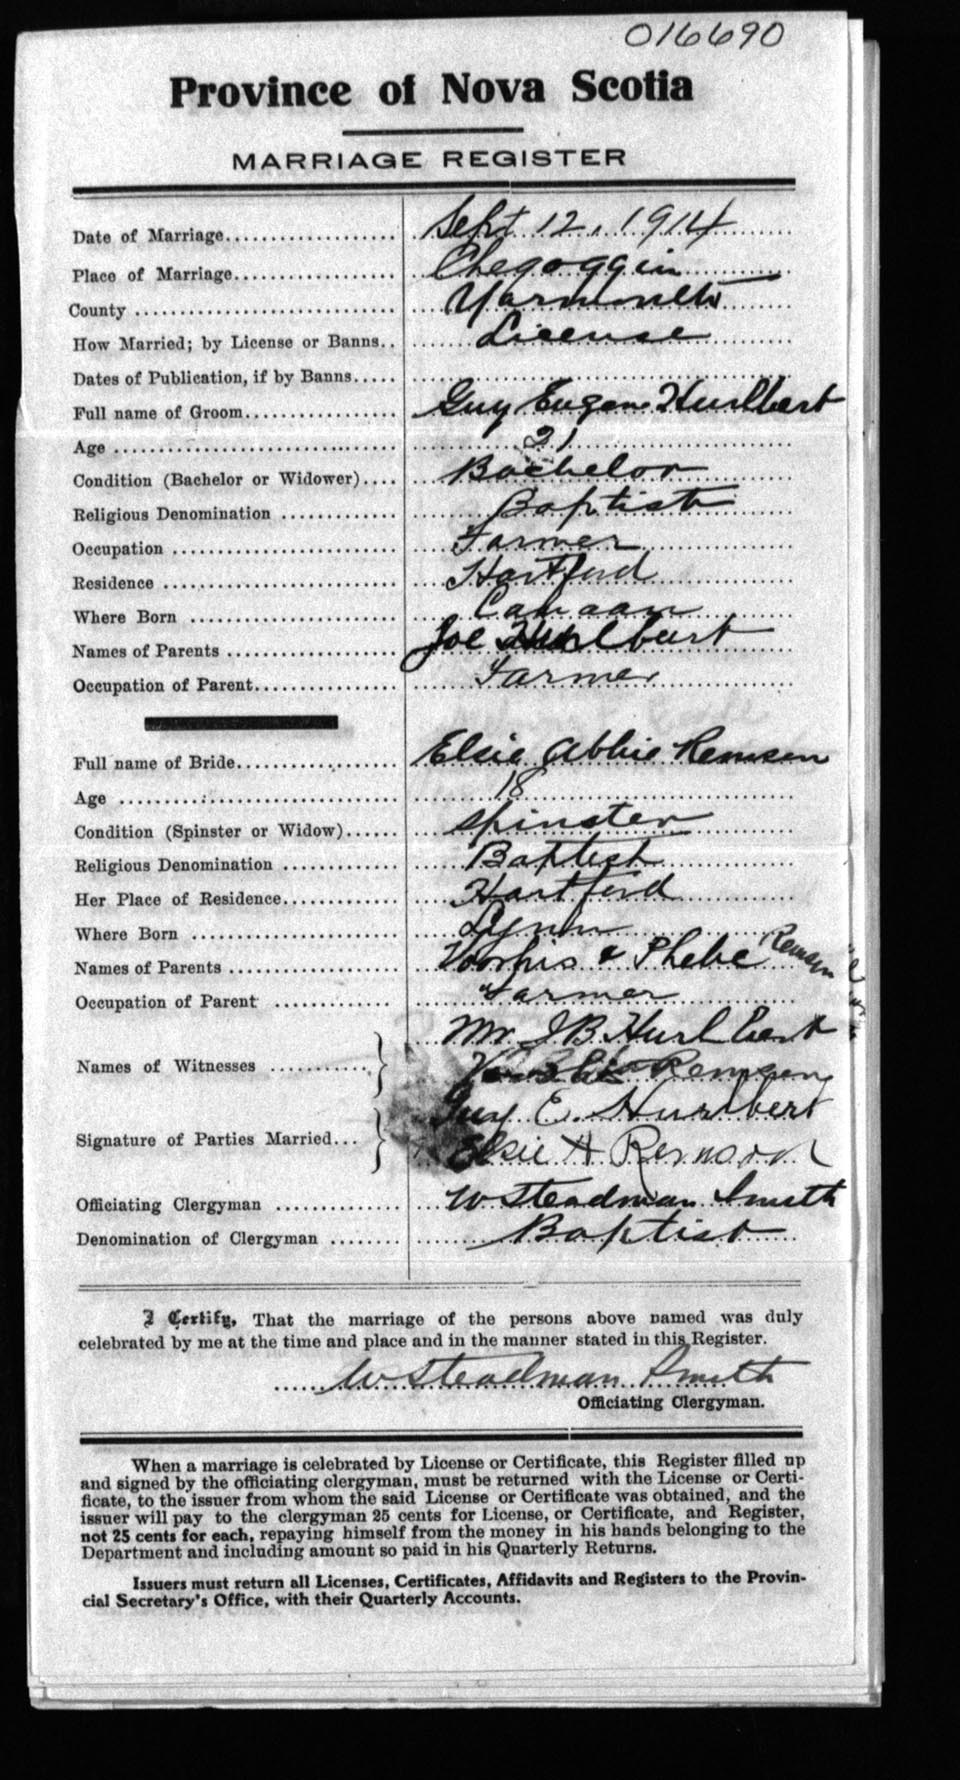 016690
Province of Nova Scotia
MARRIAGE REGISTER
Date of Marriage.................... Sept 12, 1914
Place of Marriage................... Chegoggin
County .............................. Yarmouth
How Married; by License or Banns.. License
Dates of Publication, if by Banns.....
Full name of Groom.................. Guy Eugene Hurlbert
Age .................................. 21
Condition (Bachelor or Widower).... Bachelor
Religious Denomination ............. Baptist
Occupation .......................... Farmer
Residence ........................... Hartford
Where Born ........................ Canaan
Names of Parents .................... Joe Hurlburt
Occupation of Parent................. Farmer
Full name of Bride................... Elsie Abbie Remsen
Age .................................. 18
Condition (Spinster or Widow)...... Spinster
Religious Denomination ............. Baptist
Her Place of Residence.............. Hartford
Where Born ........................ Lynn
Names of Parents .................... Voorhis & Phebe Remsen
Occupation of Parent .............. Farmer
Mr J B Hurlbert
Names of Witnesses ........... Remsen
Guy E. Hurlbert
Signature of Parties Married... Elsie A
Officiating Clergyman .............. W Steadman Smith
Denomination of Clergyman ........ Baptist
I Certify, That the marriage of the persons above named was duly
celebrated by me at the time and place and in the manner stated in this Register.
W Steadman Smith
Officiating Clergyman.
When a marriage is celebrated by License or Certificate, this Register filled up
and signed by the officiating clergyman, must be returned with the License or Certi-
ficate, to the issuer from whom the said License or Certificate was obtained, and the
issuer will pay to the clergyman 25 cents for License, or Certificate, and Register,
not 25 cents for each, repaying himself from the money in his hands belonging to the
Department and including amount so paid in his Quarterly Returns.
Issuers must return all Licenses, Certificates, Affidavits and Registers to the Provin-
cial Secretary's Office, with their Quarterly Accounts.